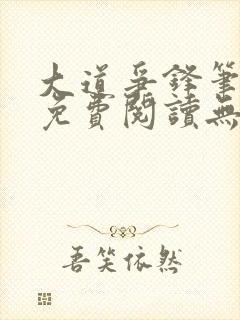 大道爭鋒筆
免費閱讀無
吾笑依然